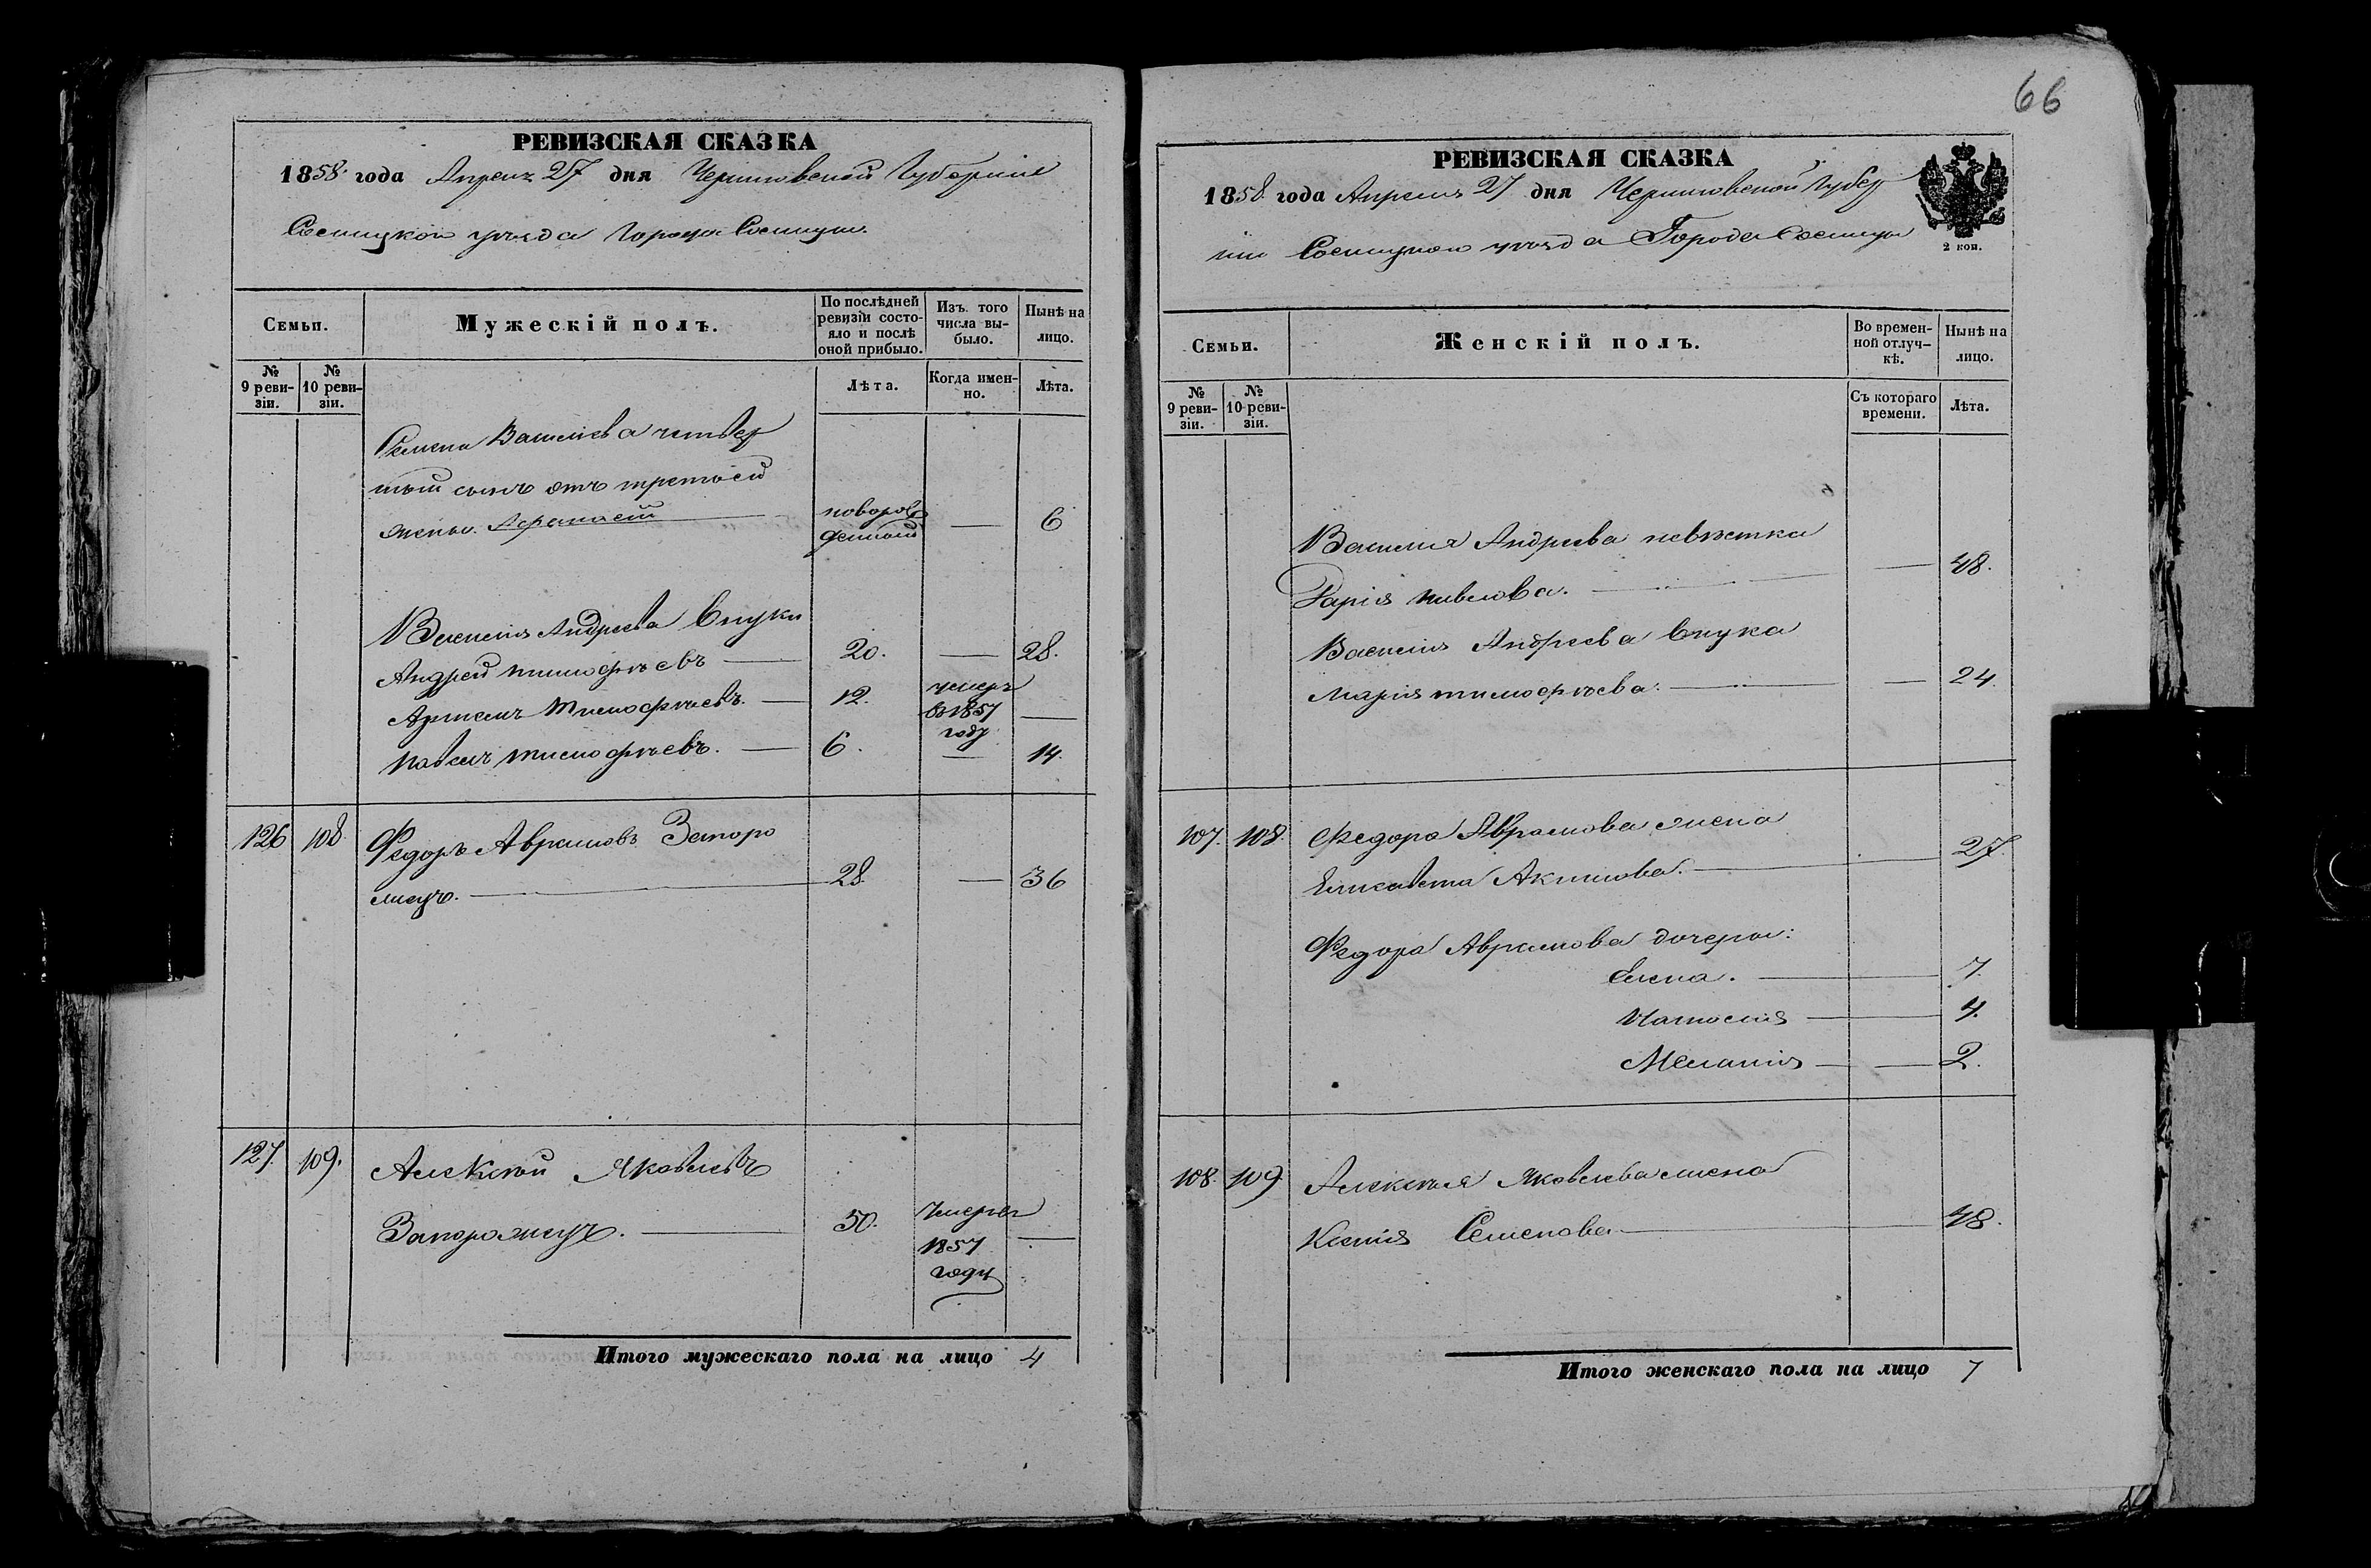 66
РЕВИЗСКАЯ СКАЗКА
1858 года Апреля 27 дня Черниговской Губернии
Сосницкого уезда Города Сосницы.
Семьи.
Мужескій полъ.
По послѣдней ревизіи состояло и послѣ оной прибыло.
Изъ того числа выбыло.
Нынѣ на лицо.
№ 9 ревизіи.
№ 10 ревизіи.
Лѣта.
Когда именно.
Лѣта.
Семена Васильева четвер
тый сынъ отъ третьей
жены. Афанасій новорожденный — 6
Василія Андреева внуки
Андрей Тимофѣевъ — 20. — 28.
Артемъ Тимофѣевъ. — 12. умеръ в 1857 году —
Павелъ Тимофѣевъ. — 6. — 14.
126 108. Федоръ Аврамовъ Запоро
жецъ. — 28. — 36
127. 109. Алексѣй Яковлевъ
Запорожецъ. — 50. Умеръ 1857 году —
Итого мужескаго пола на лицо 4
РЕВИЗСКАЯ СКАЗКА
1858 года Апреля 27 дня Черниговской Губер
ніи Сосницкого уѣзда Города Сосницы
2 коп.
Семьи.
Женскій полъ.
Во временной отлучкѣ.
Нынѣ на лицо.
№ 9 ревизіи.
№ 10 ревизіи.
Съ котораго времени.
Лѣта.
Василія Андреева невѣстка
Дарія Павлова. — — 48.
Василія Андреева внука
Марія Тимофѣева. — — 24.
107. 108. Федора Аврамова жена
Елисавета Акимова. — 27.
Федора Аврамова дочери:
Елена. — 7.
Наталія — 4.
Меланія — — 2.
108. 109. Алексѣя Яковлева жена
Ксенія Семенова — 48.
Итого женскаго пола на лицо 7